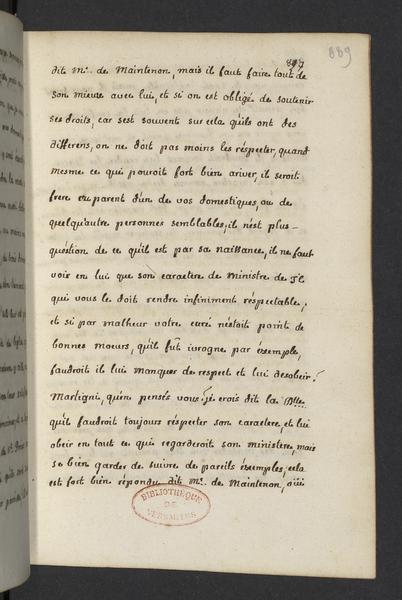 889
dit Me. de Maintenon, mais il faut faire tout de
son mieux avec lui, et si on est obligé de soutenir
ses droits, car sest souvent sur cela qu'ils ont des
differens, on ne doit pas moins les réspecter, quand
mesme ce qui pouroit fort bien ariver, il seroit
frere ou parent d'un de vos domestiques, ou de
quelqu'autre personnes semblables, il n'est plus
quéstion de ce qu'il est par sa naissance, il ne faut
voir en lui que son caractere de Ministre de J.C.
qui vous le doit rendre infiniment réspectable;
et si par malheur votre curé n'estoit point de
bonnes moeurs, qu'il fut ivrogne par éxemple,
faudroit il lui manquer de respect et lui desobeir?
Martigni, qu'en pensés vous? je crois dit la Dlle.
qu'il faudroit toujours réspecter son caractere, et lui
obeir en tout ce qui regarderoit son ministere, mais
se bien garder de suivre de pareils éxemples, cela
est fort bien répondu dit Me. de Maintenon, oüi
BIBLIOTHEQUE
DE
VERSAILLES